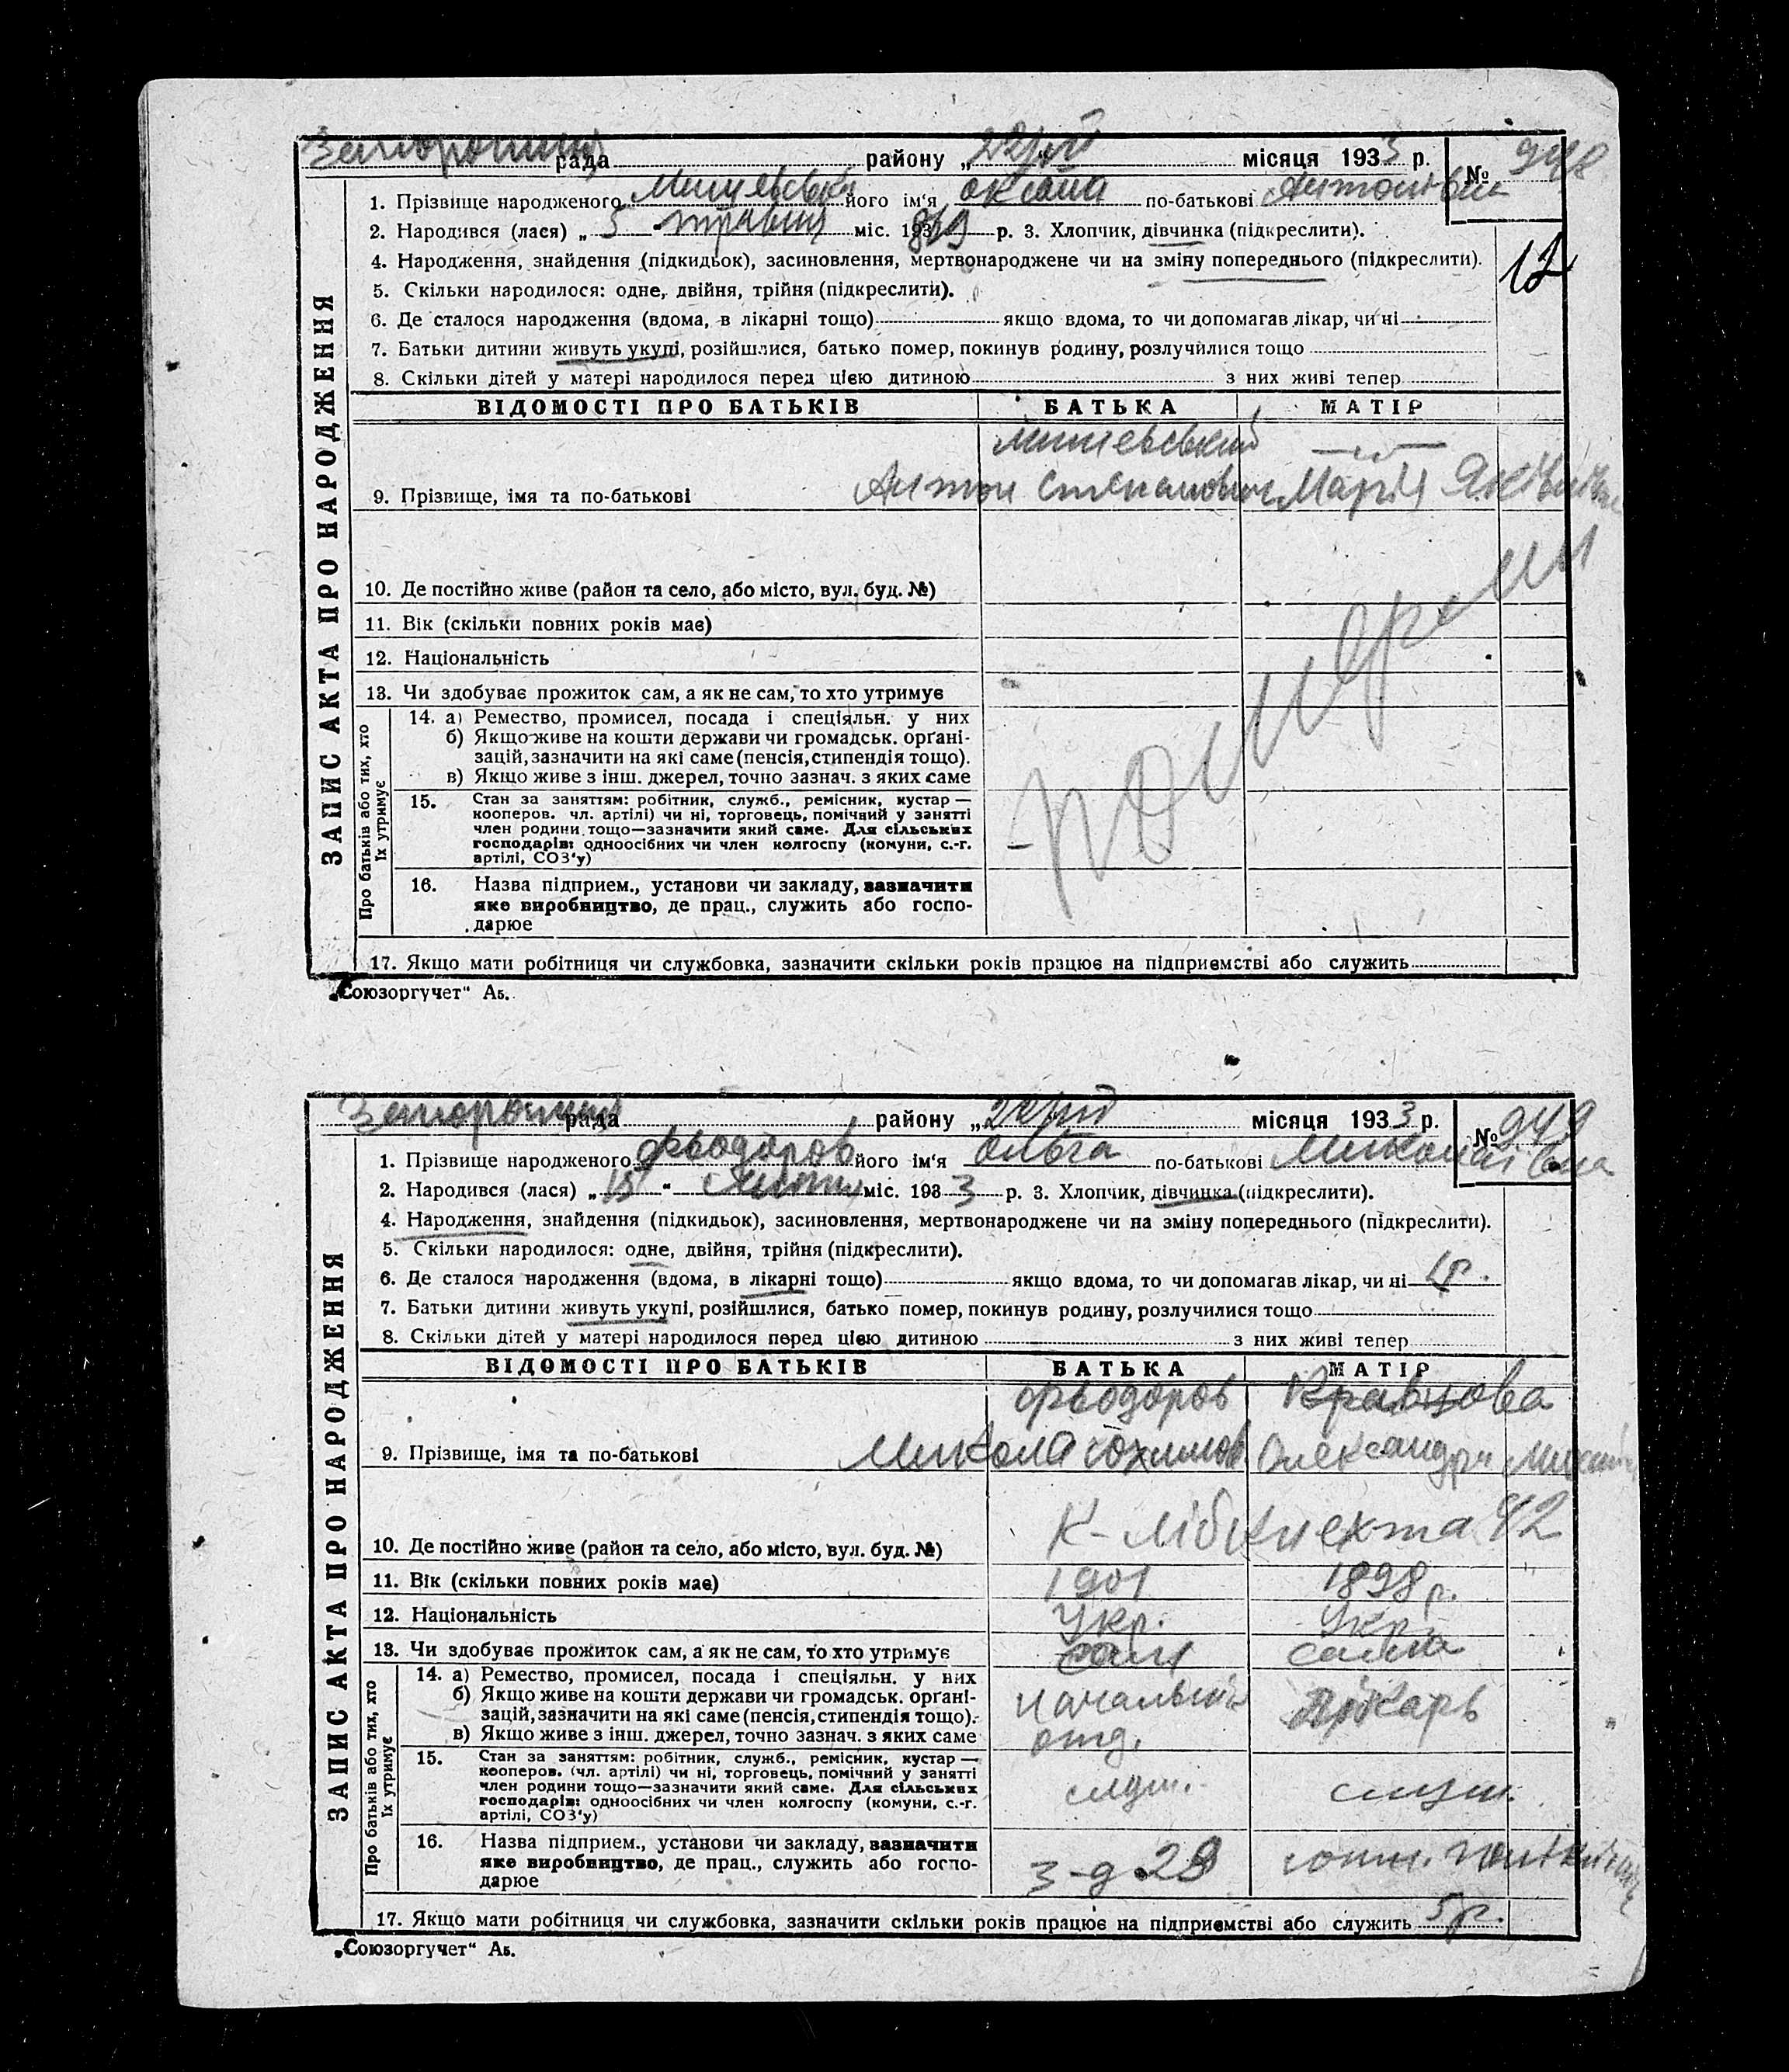 рада району „22/VII місяця 1933 р. № 948
1. Прізвище народженого його ім'я Оксана по-батькові Антонівна
2. Народився (лася) „ 5 травня міс. р. 3. Хлопчик, дівчинка (підкреслити).
4. Народження, знайдення (підкидьок), засиновлення, мертвонароджене чи на зміну попереднього (підкреслити).
12
5. Скільки народилося: одне, двійня, трійня (підкреслити).
6. Де сталося народження (вдома, в лікарні тощо) якщо вдома, то чи допомагав лікар, чи ні
7. Батьки дитини живуть укупі, розійшлися, батько помер, покинув родину, розлучилися тощо
8. Скільки дітей у матері народилося перед цією дитиною з них живі тепер
ЗАПИС АКТА ПРО НАРОДЖЕННЯ
ВІДОМОСТІ ПРО БАТЬКІВ БАТЬКА МАТІР
9. Прізвище, імя та по-батькові Антон Степанович Марія Яківна
10. Де постійно живе (район та село, або місто, вул. буд. №)
11. Вік (скільки повних років має)
12. Національність
13. Чи здобуває прожиток сам, а як не сам, то хто утримує
Про батьків або тих, хто
їх утримує
14. а) Ремество, промисел, посада і спеціяльн. у них
б) Якщо живе на кошти держави чи громадськ. орґані-
зацій, зазначити на які саме (пенсія, стипендія тощо).
в) Якщо живе з інш. джерел, точно зазнач. з яких саме
15. Стан за заняттям: робітник, служб., ремісник, кустар —
кооперов. чл. артілі) чи ні, торговець, помічний у занятті
член родини тощо—зазначити який саме. Для сільських
господарів: одноосібних чи член колгоспу (комуни, с.-г.
артілі, СОЗ'у)
16. Назва підприєм., установи чи закладу, зазначити
яке виробництво, де прац., служить або госпо-
дарює
17. Якщо мати робітниця чи службовка, зазначити скільки років працює на підприємстві або служить
„Союзоргучет" Аб.
рада району „22/VII місяця 1933 р. № 949
1. Прізвище народженого Фьодоров його ім'я Ольга по-батькові Миколаївна
2. Народився (лася) „ 15 " липня міс. 1933 р. 3. Хлопчик, дівчинка (підкреслити).
4. Народження, знайдення (підкидьок), засиновлення, мертвонароджене чи на зміну попереднього (підкреслити).
5. Скільки народилося: одне, двійня, трійня (підкреслити).
6. Де сталося народження (вдома, в лікарні тощо) якщо вдома, то чи допомагав лікар, чи ні
7. Батьки дитини живуть укупі, розійшлися, батько помер, покинув родину, розлучилися тощо
8. Скільки дітей у матері народилося перед цією дитиною з них живі тепер
ЗАПИС АКТА ПРО НАРОДЖЕННЯ
ВІДОМОСТІ ПРО БАТЬКІВ БАТЬКА МАТІР
Фьодоров Кравцова
9. Прізвище, імя та по-батькові Микола Олександра
К-Лібкнехта 42
10. Де постійно живе (район та село, або місто, вул. буд. №)
11. Вік (скільки повних років має) 1901 1898 р.
12. Національність Укр. Укр.
13. Чи здобуває прожиток сам, а як не сам, то хто утримує сам сама
Про батьків або тих, хто
їх утримує
14. а) Ремество, промисел, посада і спеціяльн. у них
б) Якщо живе на кошти держави чи громадськ. орґані- начальник лікарь
зацій, зазначити на які саме (пенсія, стипендія тощо).
в) Якщо живе з інш. джерел, точно зазнач. з яких саме отд.
15. Стан за заняттям: робітник, служб., ремісник, кустар —
кооперов. (чл. артілі) чи ні, торговець, помічний у занятті
член родини тощо—зазначити який саме. Для сільських служ. служ.
господарів: одноосібних чи член колгоспу (комуни, с.-г.
артілі, СОЗ'у)
16. Назва підприєм., установи чи закладу, зазначити
яке виробництво, де прац., служить або госпо- з-д 29
дарює
17. Якщо мати робітниця чи службовка, зазначити скільки років працює на підприємстві або служить 5 р.
„Союзоргучет" Аб.